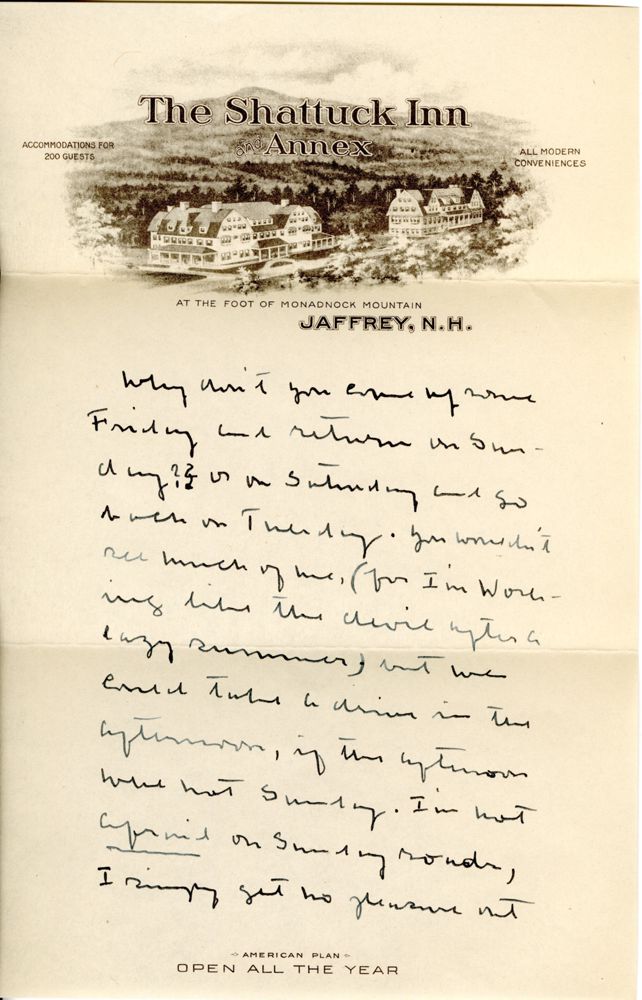 The Shattuck Inn
and Annex
ACCOMMODATIONS FOR
200 GUESTS
ALL MODERN
CONVENIENCES
AT THE FOOT OF MONADNOCK MOUNTAIN
JAFFREY, N.H.
Why don't you come up some
Friday and return on Sun-
day?? or on Saturday and go
back on Tuesday. You wouldn't
see much of me, (for I'm Work-
ing like the devil after a
lazy summer) but we
could take a drive in the
afternoon, if the afternoon
were not Sunday. I'm not
afraid on Sunday roads,
I simply get no pleasure out
AMERICAN PLAN
OPEN ALL THE YEAR